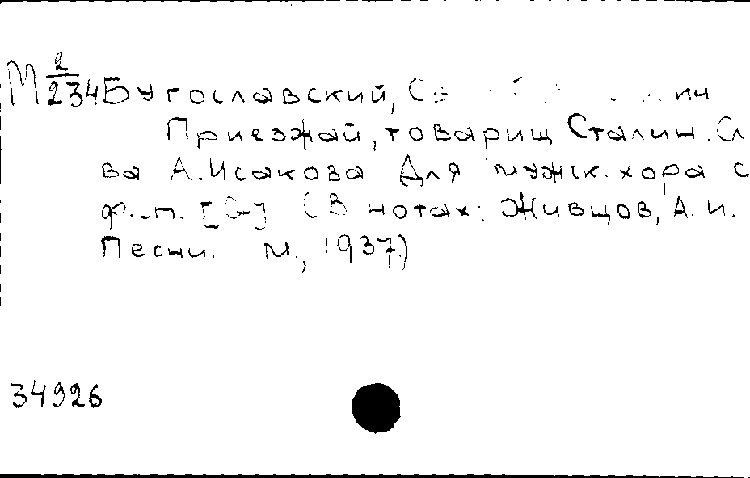 М 2/234 Бугославский,
Приезжай, товарищ Сталин. Сл
ва А. Исакова Для мужск. хора с
ф.-п. [G-] (В нотах: Живцов, А. И.
Песни. М., 1937.)
34926